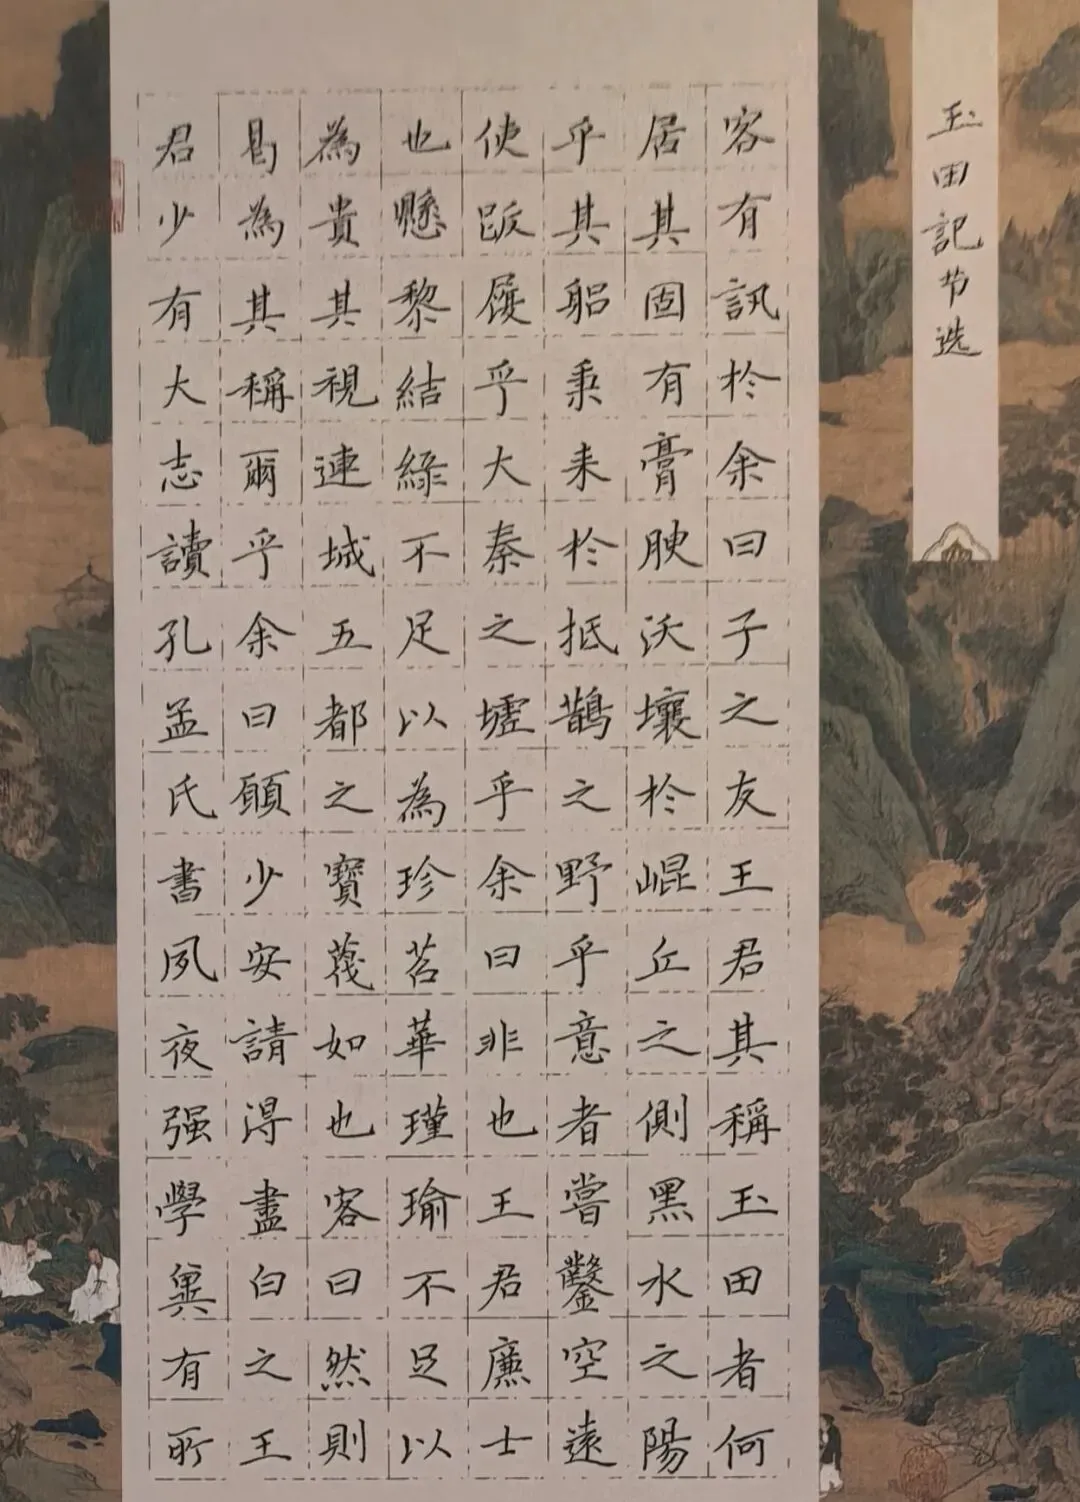 玉田記节选
客有訊於余曰子之友王君其稱玉田者何
居其固有膏腴沃壤於崐丘之側黑水之陽
乎其躬秉耒於抵鵲之野乎意者嘗鑿空遠
使踬履乎大秦之墟乎余曰非也王君廉士
也懸黎結綠不足以為珍苕華瑾瑜不足以
為貴其視連城五都之寶蔑如也客曰然則
曷為其稱爾乎余曰願少安請得盡白之王
君少有大志讀孔孟氏書夙夜强學冀有所